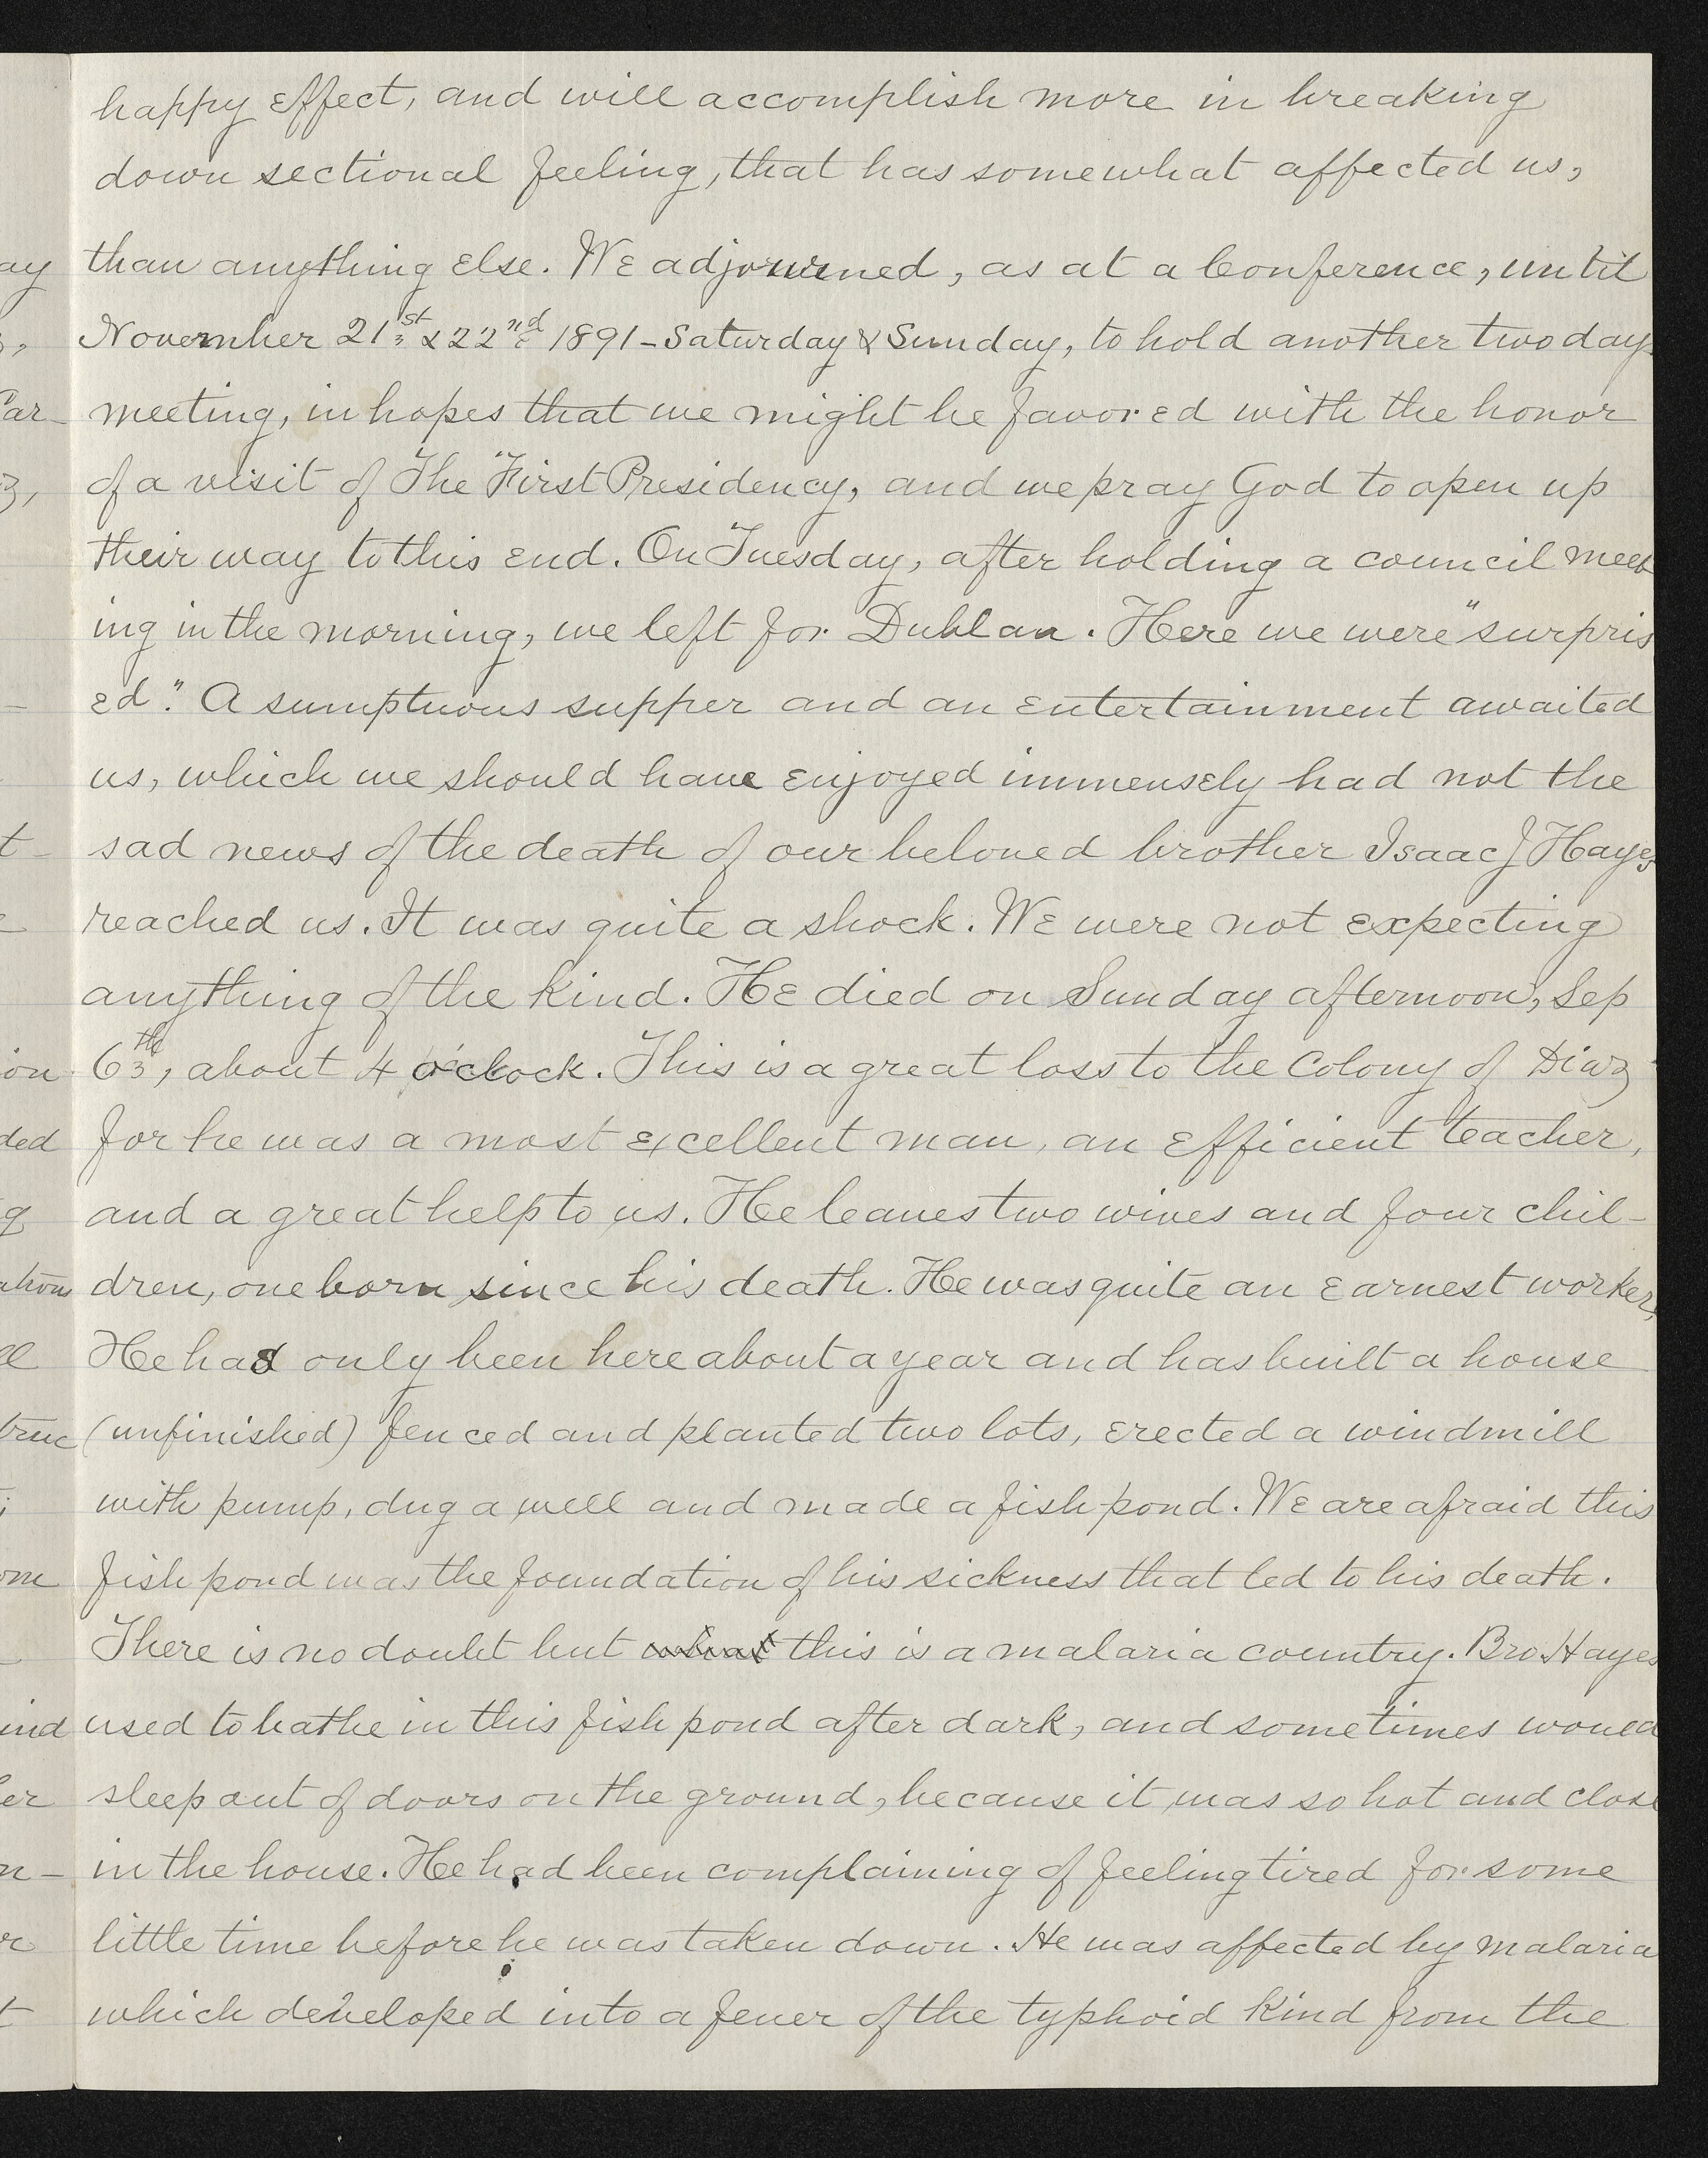 happy effect, and will accomplish more in breaking
down sectional feeling, that has somewhat affected us,
than anything else. We adjourned, as at a Conference, until
November 21st & 22nd 1891 - Saturday & Sunday, to hold another two days
meeting, in hopes that we might be favored with the honor
of a visit of The "First Presidency, and we pray God to open up
their way to this end. On Tuesday, after holding a council meet
ing in the morning, we left for Dublan. Here we were "surpris
ed". A sumptuous supper and an entertainment awaited
us, which we should have enjoyed immensely had not the
sad news of the death of our beloved brother Isaac J Hayes
reached us. It was quite a shock. We were not expecting
anything of the kind. He died on Sunday afternoon, Sep
6th, about 4 o'clock. This is a great loss to the Colony of Diaz
for he was a most excellent man, an efficient teacher,
and a great help to us. He leaves two wives and four chil-
dren, one born since his death. He was quite an earnest worker,
He had only been here about a year and has built a house
(unfinished) fenced and planted two lots, erected a windmill
with pump, dug a well and made a fish pond. We are afraid this
fish pond was the foundation of his sickness that led to his death.
There is no doubt but what this is a malaria country. Bro. Hayes
used to bathe in this fish pond after dark, and sometimes would
sleep out of doors on the ground, because it was so hot and close
in the house. He had been complaining of feeling tired for some
little time before he was taken down. He was affected by malaria
which developed into a fever of the typhoid kind from the